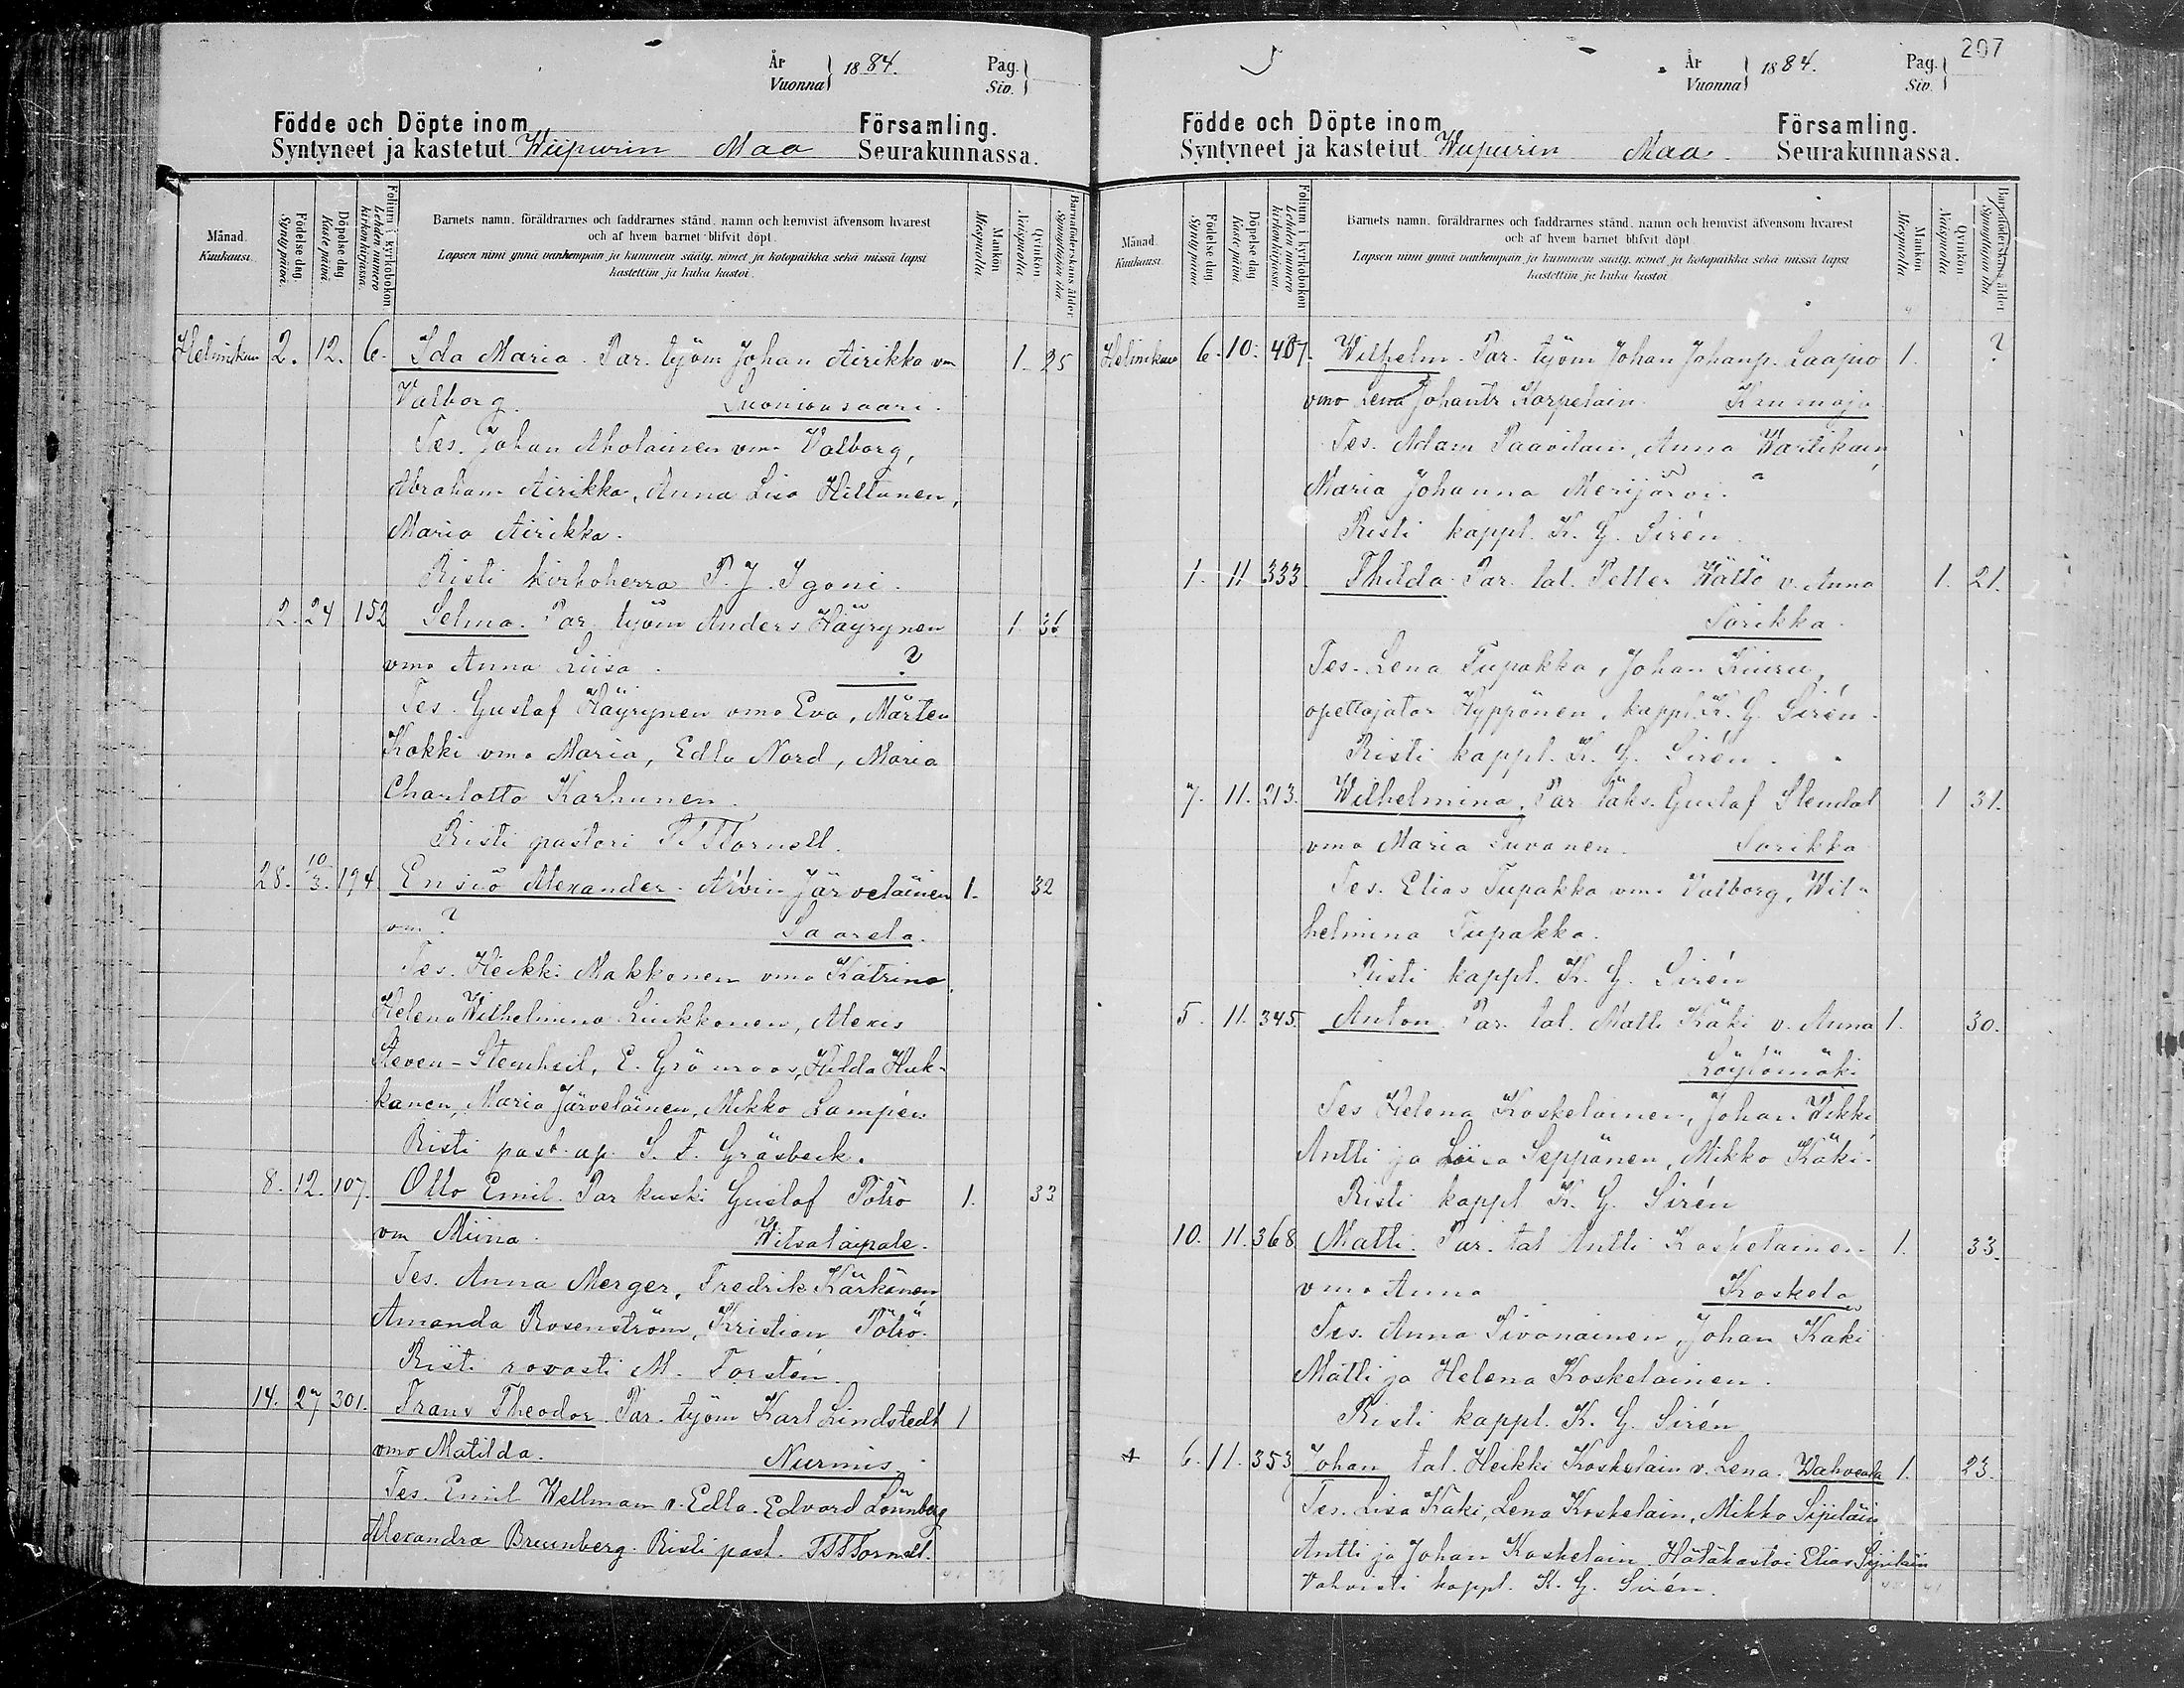 År
Vuonna } 1884.
Pag.
Siv. }
Födde och Döpte inom Församling.
Syntyneet ja kastetut Wiipurin Maa Seurakunnassa.
Månad. Kuukausi.
Födelse dag. Synty päivä.
Döpelse dag. Kaste päivä.
Folium i kyrkobokon Lehden numero kirkon kirjassa.
Barnets namn, föräldrarnes och faddrarnes stånd, namn och hemvist äfvensom hvarest
och af hvem barnet blifvit döpt.
Lapsen nimi ynnä vanhempain ja kummein sääty, nimet ja kotopaikka sekä missä lapsi
kastettiin ja kuka kastoi.
Mankön. Miespuolta.
Qvinkön. Naispuolta.
Barnaföderskans ålder. Synnyttäjän ikä.
Helmikuu 2. 12. 6. Ida Maria. Par. työm Johan Airikka vm 1. 25
Valborg. Suonionsaari.
Tes. Johan Aholainen vm. Valborg,
Abraham Airikka, Anna Lisa Hiltunen,
Maria Airikka.
Risti kirkoherra P. J. Igoni.
2. 24 152 Selma. Par. työm Anders Häyrynen 1 36
vmo Anna Liisa. ?
Tes. Gustaf Häyrynen vmo Eva, Mårten
Kokki vmo Maria, Edla Nord, Maria
Charlotta Karhunen.
Risti pastori Tornell.
28. 10/3. 194 Ensio Alexander. Arvin Järveläinen 1. 32
vm ? Saarela.
Tes. Heikki Makkonen vmo Katrina,
Helena Wilhelmina Liukkonen, Alexis
Steven-Steinheil, E. Grönroos, Hilda Huk-
kanen, Maria Järveläinen, Mikko Lampén
Risti past. ap. S. F. Gräsbeck.
8. 12. 107. Otto Emil. Par kuski Gustaf Pötrö 1. 33
vm Miina. Witsataipale.
Tes. Anna Merger, Fredrik Kärkönen,
Amanda Rosenström, Kristian Pötrö.
Risti rovasti M. Forstén.
14. 27 301. Frans Theodor. Par. työm Karl Lindstedt 1
vmo Matilda. Nurmis.
Tes. Emil Wellman v. Edla. Edvard Lönnberg
Alexandra Brunnberg. Risti past. Tornell.
207
År
Vuonna } 1884.
Pag.
Siv. }
Födde och Döpte inom Församling.
Syntyneet ja kastetut Wiipurin Maa Seurakunnassa.
Månad. Kuukausi.
Födelse dag. Synty päivä.
Döpelse dag. Kaste päivä.
Folium i kyrkobokon Lehden numero kirkon kirjassa.
Barnets namn, föräldrarnes och faddrarnes stånd, namn och hemvist äfvensom hvarest
och af hvem barnet blifvit döpt.
Lapsen nimi ynnä vanhempain ja kummein sääty, nimet ja kotopaikka sekä missä lapsi
kastettiin ja kuka kastoi.
Mankön. Miespuolta.
Qvinkön. Naispuolta.
Barnaföderskans ålder. Synnyttäjän ikä.
Helmikuu 6. 10. 407. Wilhelm. Par. työm Johan Johanp. Laapio 1. ?
vmo Lena Johantr Korpelain.
Tes. Adam Paavilain, Anna Wartikain,
Maria Johanna Merijärvi.
Risti kappl. K. G. Sirén.
1. 11 333. Thilda. Par. tal. Petter Wättö v. Anna 1. 21.
Sorikka.
Tes. Lena Tupakka, Johan Kiuru,
opettajatar Hyppönen, kappl. K. G. Sirén.
Risti kappl. K. G. Sirén.
7. 11. 213. Wilhelmina. Par. Gustaf Stendal 1 31.
vmo Maria Suvanen. Sorikka
Tes. Elias Tupakka vm. Valborg, Wil-
helmina Tupakka.
Risti kappl. K. G. Sirén
5. 11. 345. Anton. Par. tal. Matti Käki v. Anna 1. 30.
Löytömäki
Tes Helena Koskelainen, Johan Wikki
Antti ja Liisa Seppänen, Mikko Käki.
Risti kappl K. G. Sirén
10. 11. 368 Matti. Par. tal Antti Koskelainen 1. 33.
vmo Anna Koskela
Tes. Anna Sivonainen, Johan Käki
Matti ja Helena Koskelainen.
Risti kappl. K. G. Sirén
6. 11. 353 Johan tal. Heikki Koskelain v. Lena. 1. 23.
Tes. Lisa Käki, Lena Koskelain, Mikko Sipiläin,
Antti ja Johan Koskelain. Hätäkastoi Elias Sipiläin
Vahvisti kappl. K. G. Sirén.